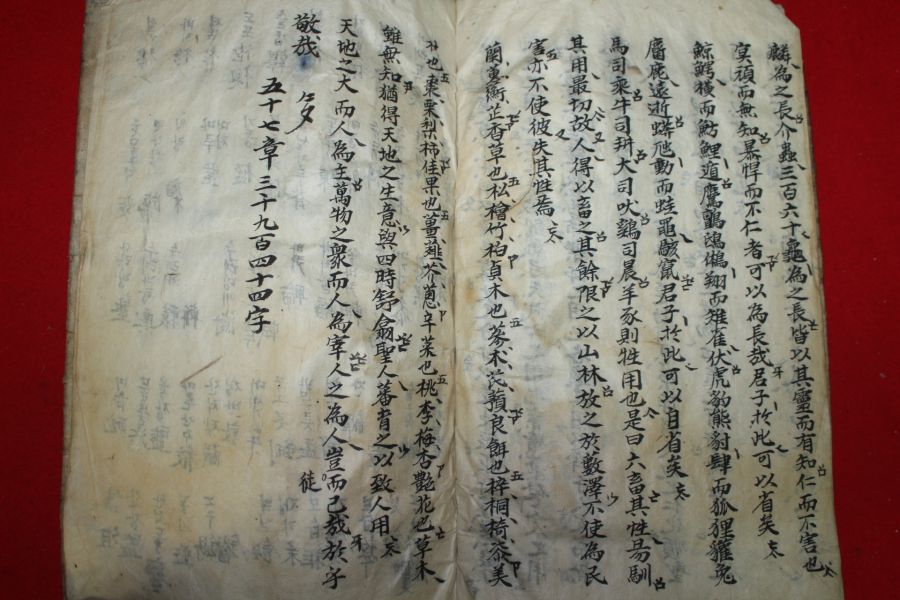 麟為之長介蟲三百六十龜為之長皆以其靈而有知仁而不害也
冥頑而無知暴悍而不仁者可以為長哉君子於此可以省矣
鯨鰐橫而魴鯉遁鷹鸇鴟鵂翔而雉雀伏虎豹熊豺肆而狐狸獾兔
麕鹿遠逝蟒虺動而蛙黽駭竄君子於此可以自省矣
馬司乘牛司耕犬司吠鷄司晨羊豕則牲用也是曰六畜其性易馴
其用最切故人得以畜之其餘限之以山林放之於藪澤不使為民
害亦不使彼失其性焉
蘭薰蘅芷香草也松檜竹柏貞木也蔘朮茂蘋良餌也梓桐椅桼美
材也棗栗梨柿佳果也薑薤芥蔥辛菜也桃李梅杏艷花也草木
雖無知猶得天地之生意與四時舒翕聖人蕃育之以致人用
天地之大而人為主萬物之衆而人為宰人之為人豈徒而已哉於乎
敬哉
五十七章三千九百四十四字